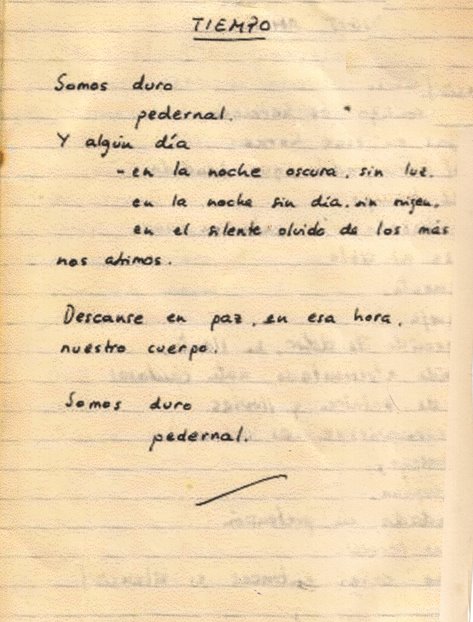 TIEMPO
Somos duro
pedernal.
Y algún día
- en la noche oscura, sin luz,
en la noche sin día, sin origen,
en el silente olvido de los más
nos abrimos.
Descanse en paz, en esa hora,
nuestro cuerpo.
Somos duro
pedernal.